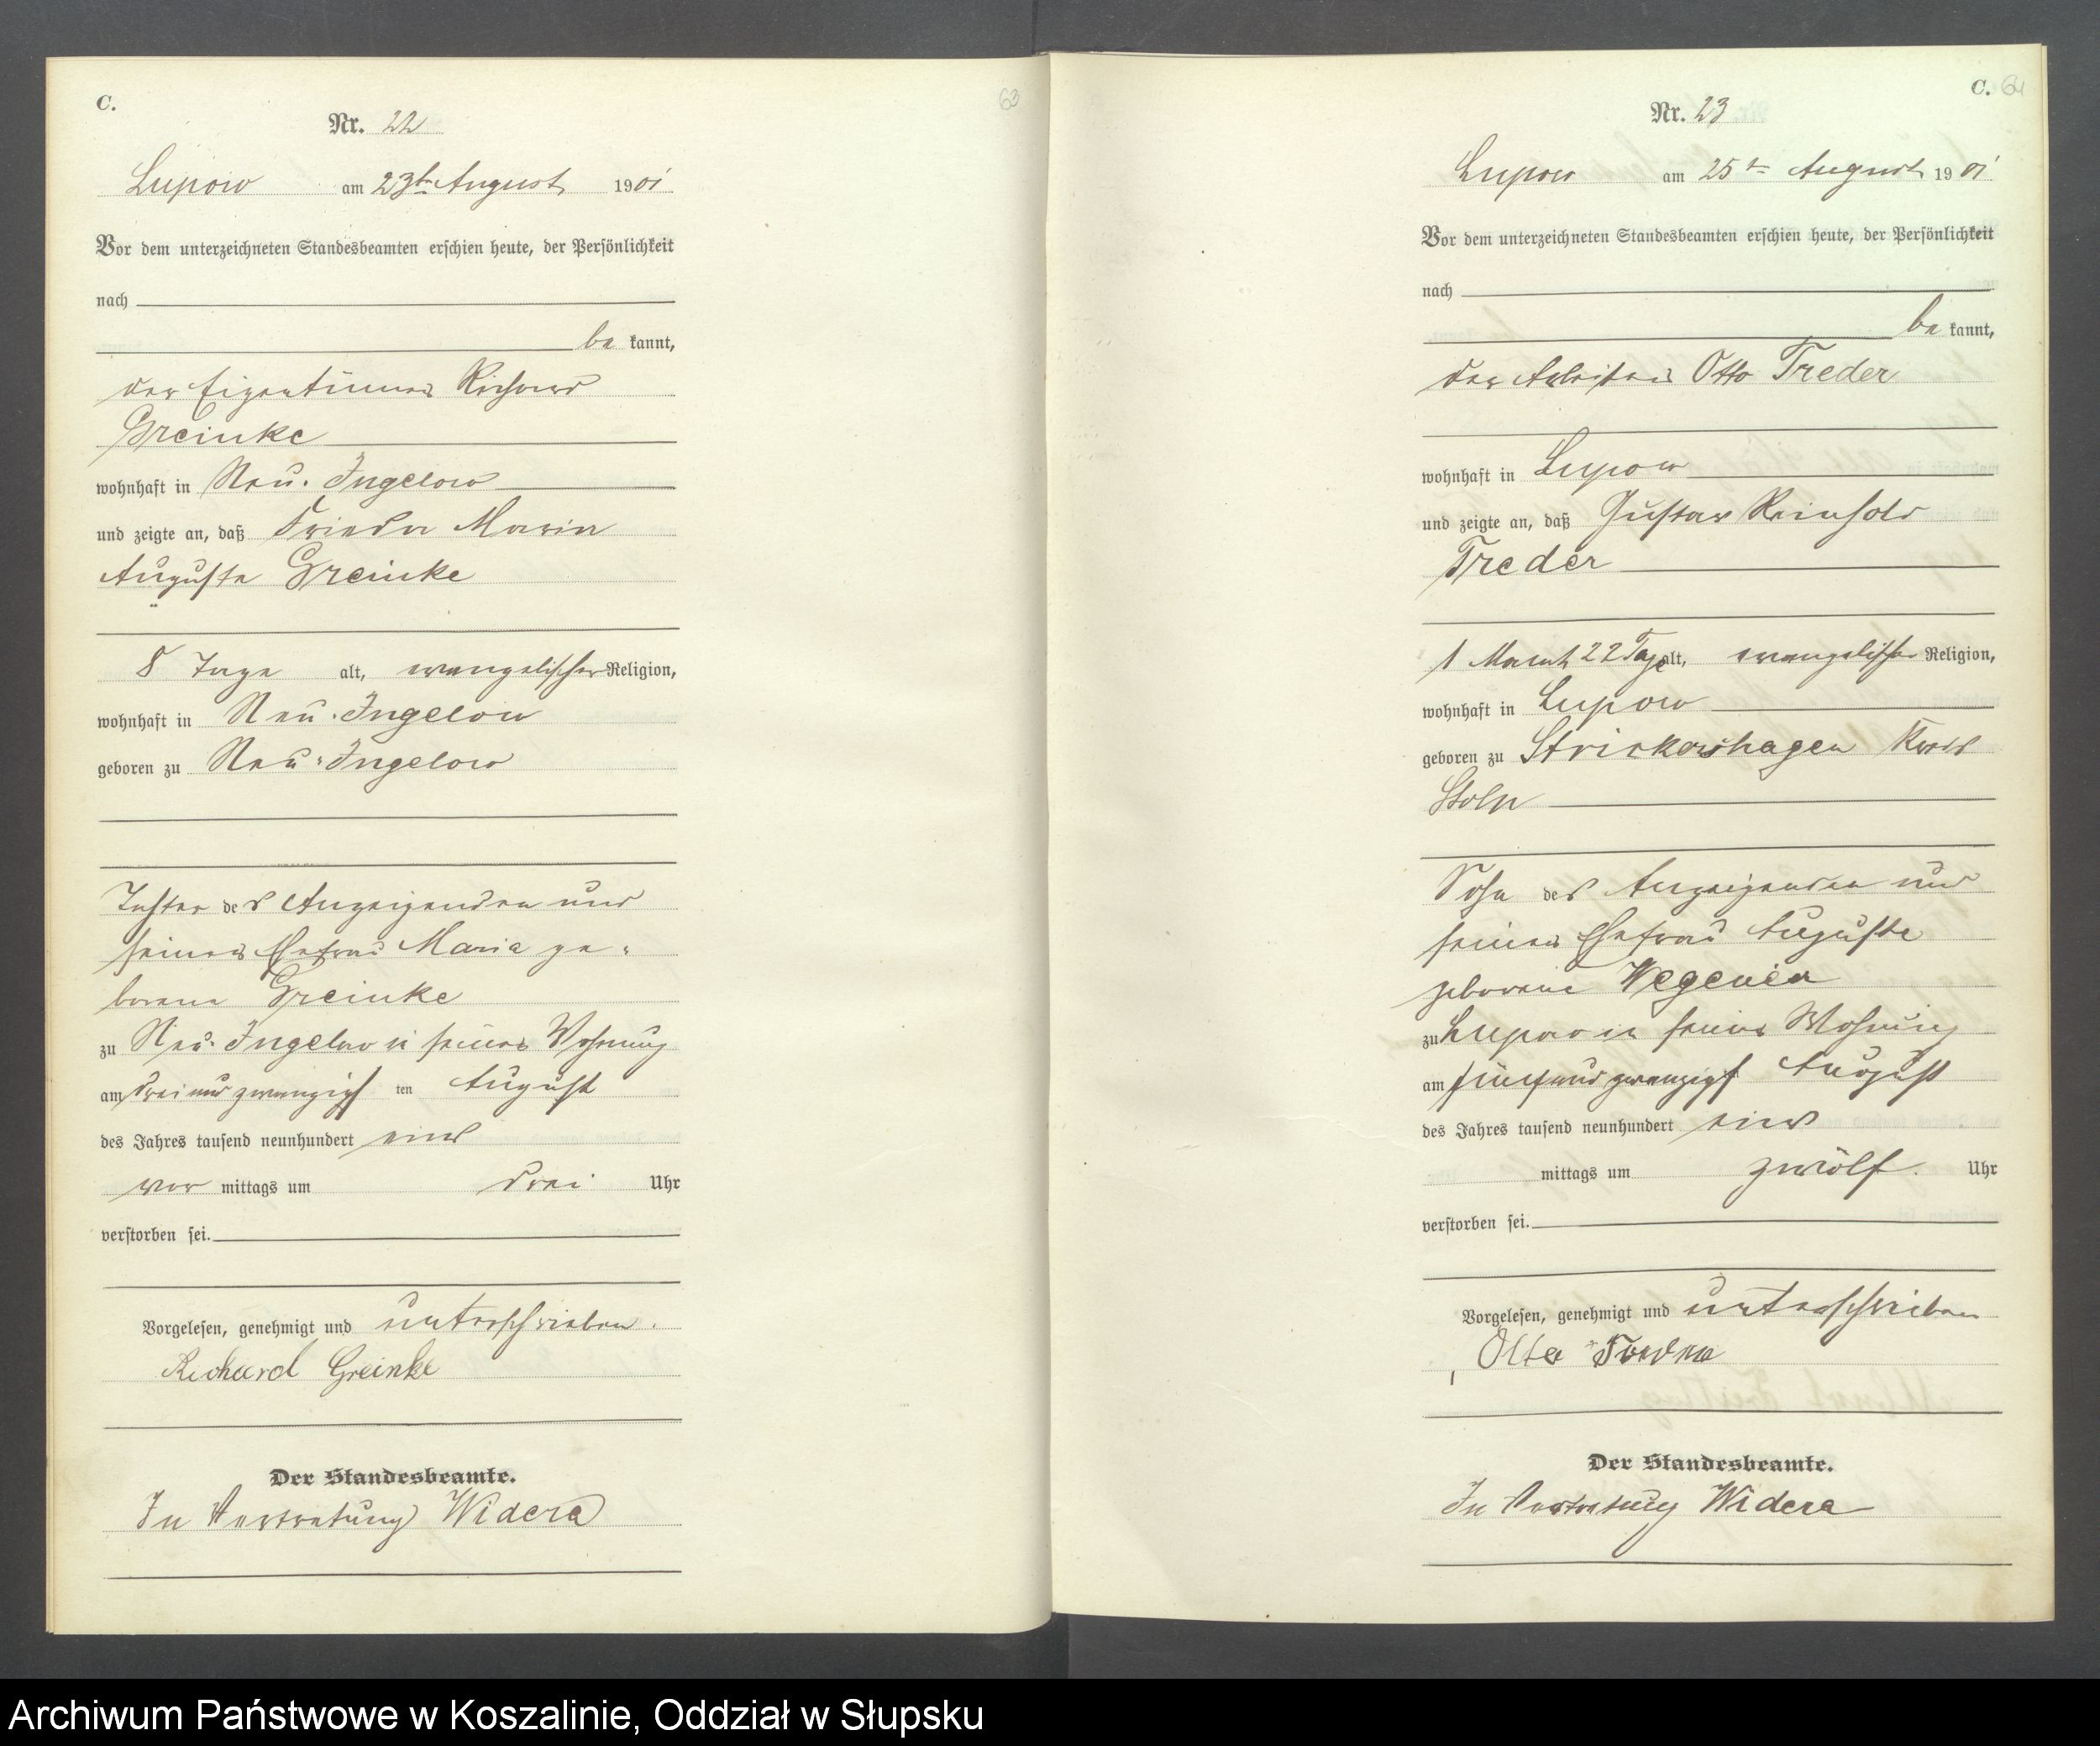 C.
63
Nr. 22
Lupow am 23ten August 1901
Vor dem unterzeichneten Standesbeamten erschien heute, der Persönlichkeit
nach
be kannt,
der Eigentümer Richard
Greinke
wohnhaft in Neu-Jngelow
und zeigte an, daß Frieda Maria
Auguste Greinke
8 Tage alt, evangelischer Religion,
wohnhaft in Neu-Jngelow
geboren zu Neu-Jngelow
Tochter des Anzeigenden und
seiner Ehefrau Maria ge-
borene Greinke
zu Neu-Jngelow in seiner Wohnung
am drei und zwanzigsten August
des Jahres tausend neunhundert eins
vor mittags um drei Uhr
verstorben sei.
Vorgelesen, genehmigt und unterschrieben.
Richard Greinke
Der Standesbeamte.
In Vertretung Widera
C. 64
Nr. 23
Lupow am 25ten August 1901
Vor dem unterzeichneten Standesbeamten erschien heute, der Persönlichkeit
nach
be kannt,
der Arbeiter Otto Treder
wohnhaft in Lupow
und zeigte an, daß Gustav Reinhold
Treder
1 Monat 22 Tage alt, evangelischer Religion,
wohnhaft in Lupow
geboren zu Strickershagen Kreis
Stolp
Sohn des Anzeigenden und
seiner Ehefrau Auguste
geborene Wegener
zu Lupow in seiner Wohnung
am fünf und zwanzigsten August
des Jahres tausend neunhundert eins
mittags um zwölf Uhr
verstorben sei.
Vorgelesen, genehmigt und unterschrieben
Otto Treder
Der Standesbeamte.
In Vertretung Widera
Archiwum Państwowe w Koszalinie, Oddział w Słupsku